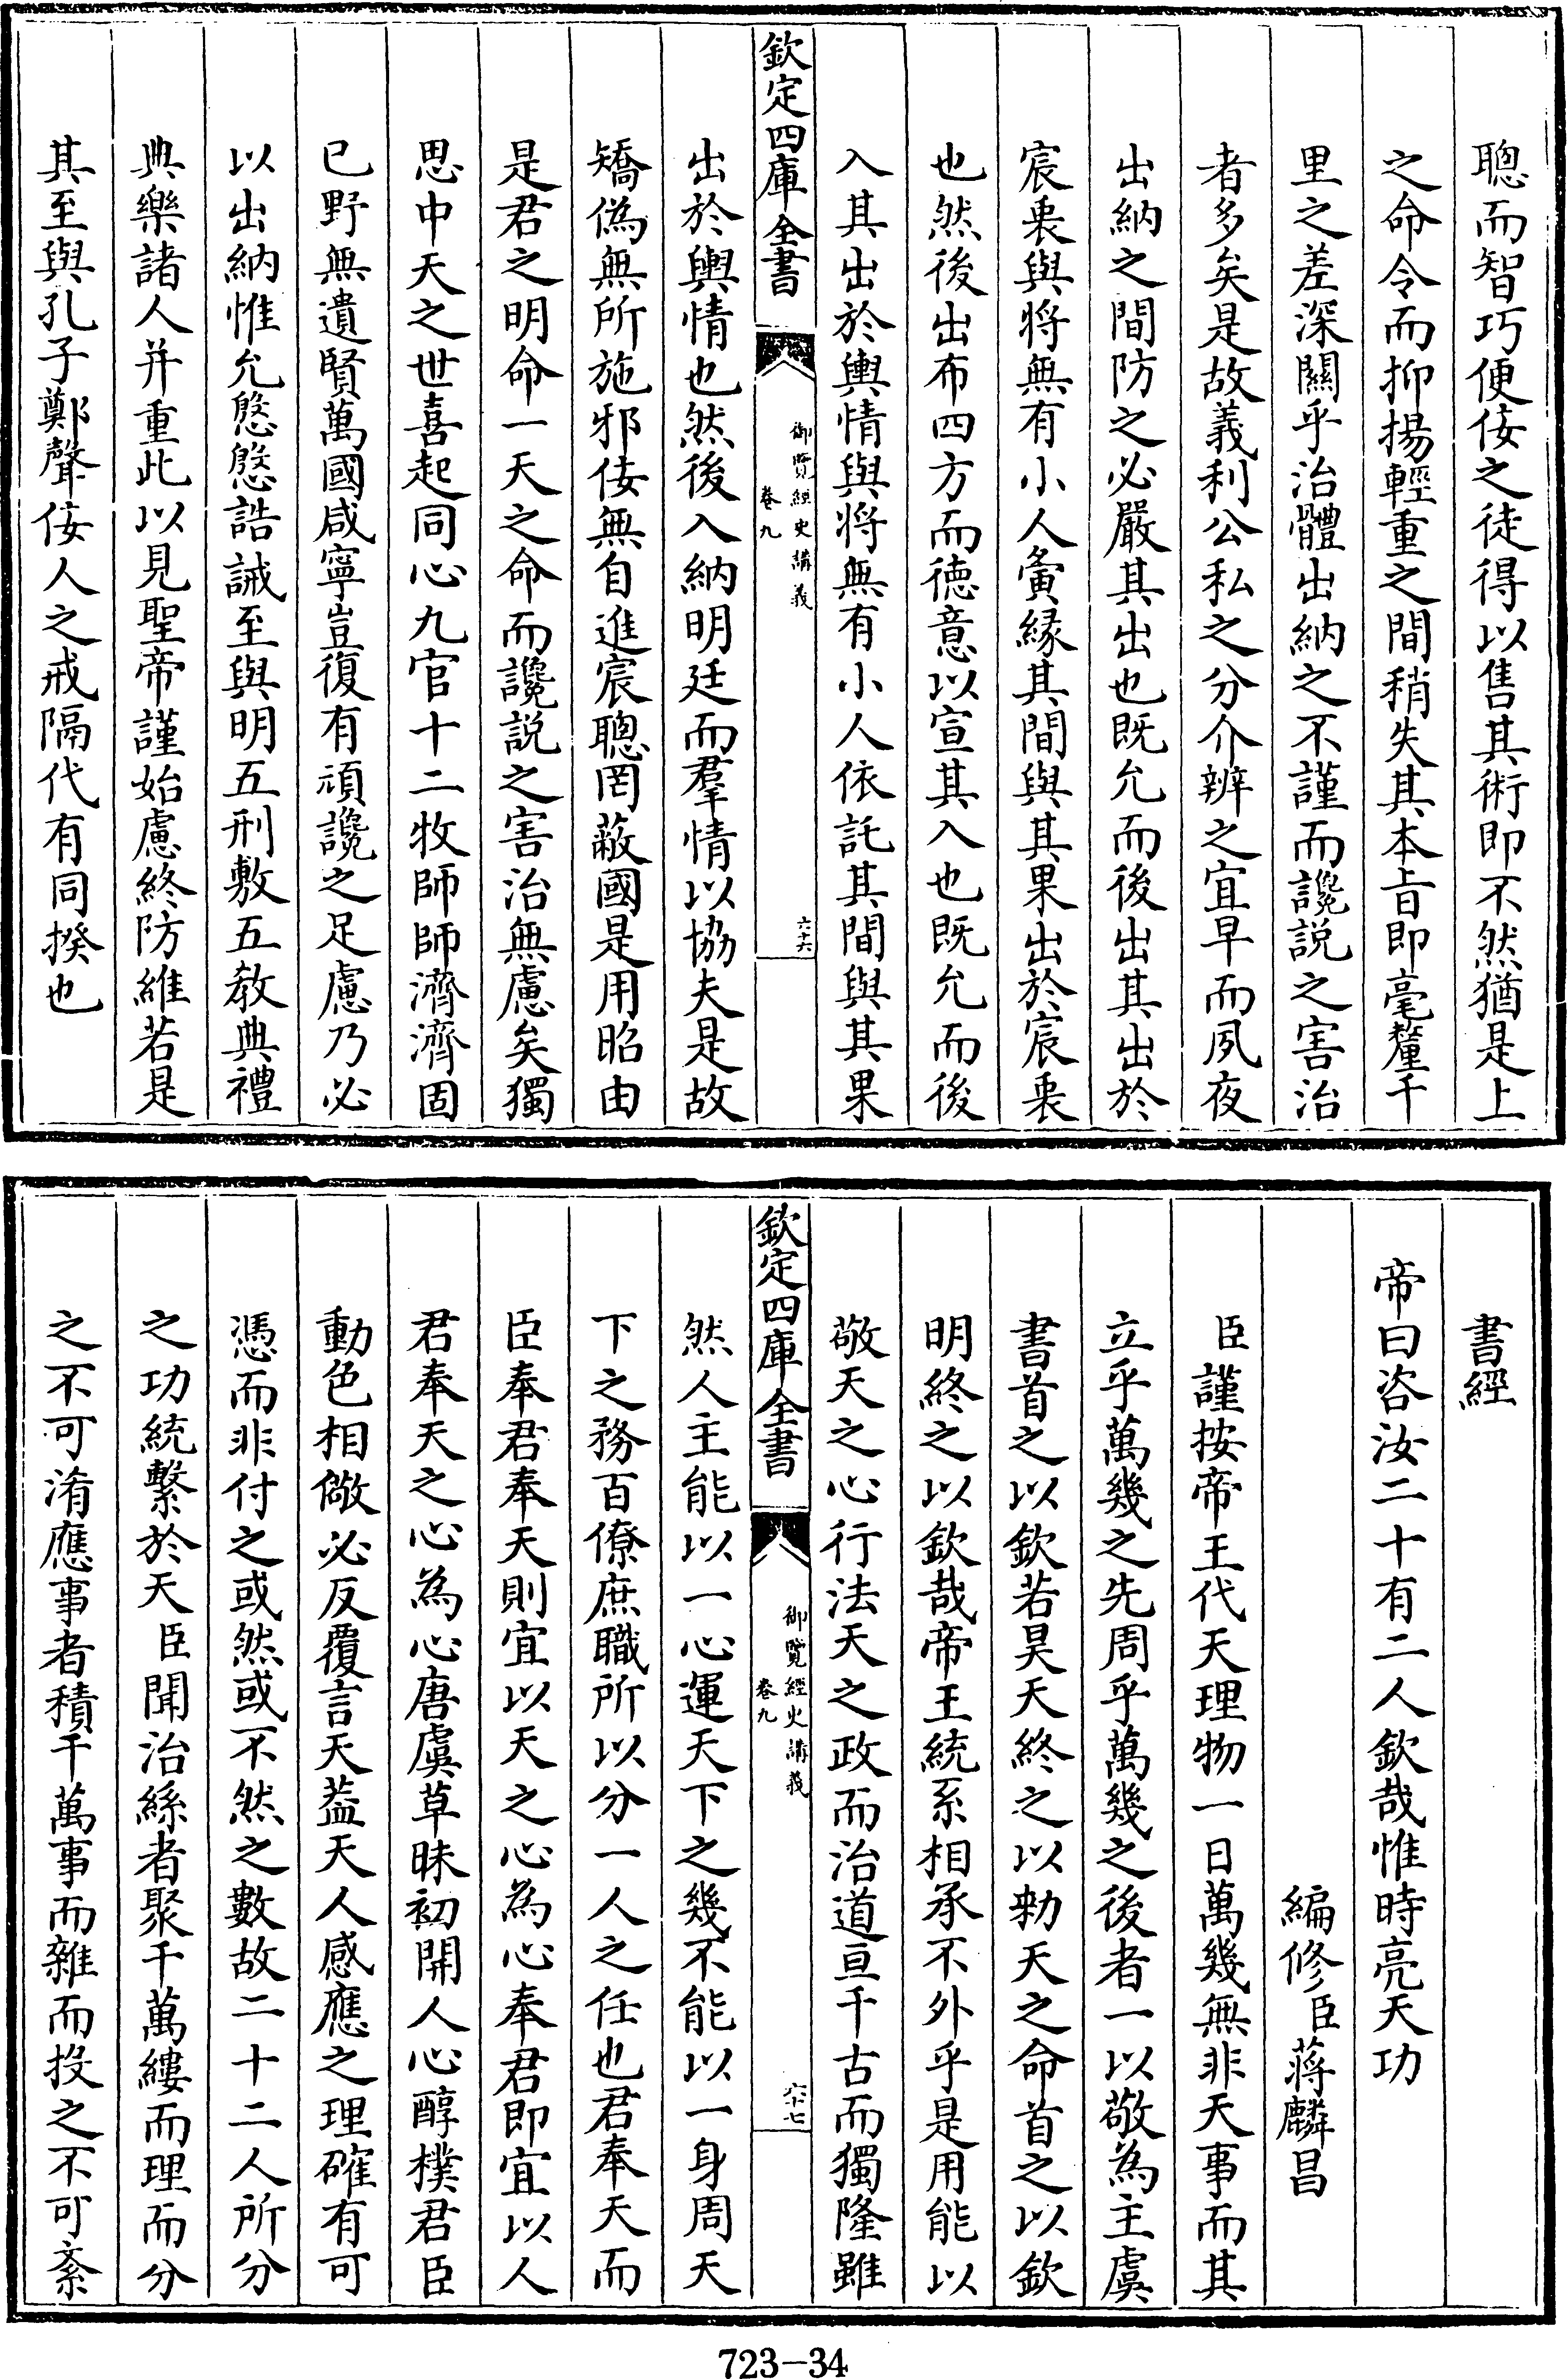 聰而智巧便佞之徒得以售其術即不然猶是上
之命令而抑揚輕重之間稍失其本旨即毫釐千
里之差深關乎治體出納之不謹而讒説之害治
者多矣是故義利公私之分介辨之宜早而夙夜
出納之間防之必嚴其出也既允而後出其出於
宸衷與將無有小人夤緣其間與其果出於宸衷
也然後出布四方而徳意以宣其入也既允而後
入其出於輿情與將無有小人依託其間與其果
欽定四庫全書
御覽經史講義
卷九
六十六
出於輿情也然後入納明廷而羣情以協夫是故
矯偽無所施邪佞無自進宸聰罔蔽國是用昭由
是君之明命一天之命而讒説之害治無慮矣獨
思中天之世喜起同心九官十二牧師師濟濟固
已野無遺賢萬國咸寧豈復有頑讒之足慮乃必
以出納惟允慇慇誥誡至與明五刑敷五教典禮
典樂諸人并重此以見聖帝謹始慮終防維若是
其至與孔子鄭聲佞人之戒隔代有同揆也
書經
帝曰咨汝二十有二人欽哉惟時亮天功
編修臣蔣麟昌
臣謹按帝王代天理物一日萬幾無非天事而其
立乎萬幾之先周乎萬幾之後者一以敬為主虞
書首之以欽若昊天終之以勑天之命首之以欽
明終之以欽哉帝王統系相承不外乎是用能以
敬天之心行法天之政而治道亘千古而獨隆雖
欽定四庫全書
御覽經史講義
卷九
六十七
然人主能以一心運天下之幾不能以一身周天
下之務百僚庶職所以分一人之任也君奉天而
臣奉君奉天則宜以天之心為心奉君即宜以人
君奉天之心為心唐虞草昧初開人心醇樸君臣
動色相儆必反覆言天葢天人感應之理確有可
憑而非付之或然或不然之數故二十二人所分
之功統繫於天臣聞治絲者聚千萬縷而理而分
之不可淆應事者積千萬事而雜而投之不可紊
723-34